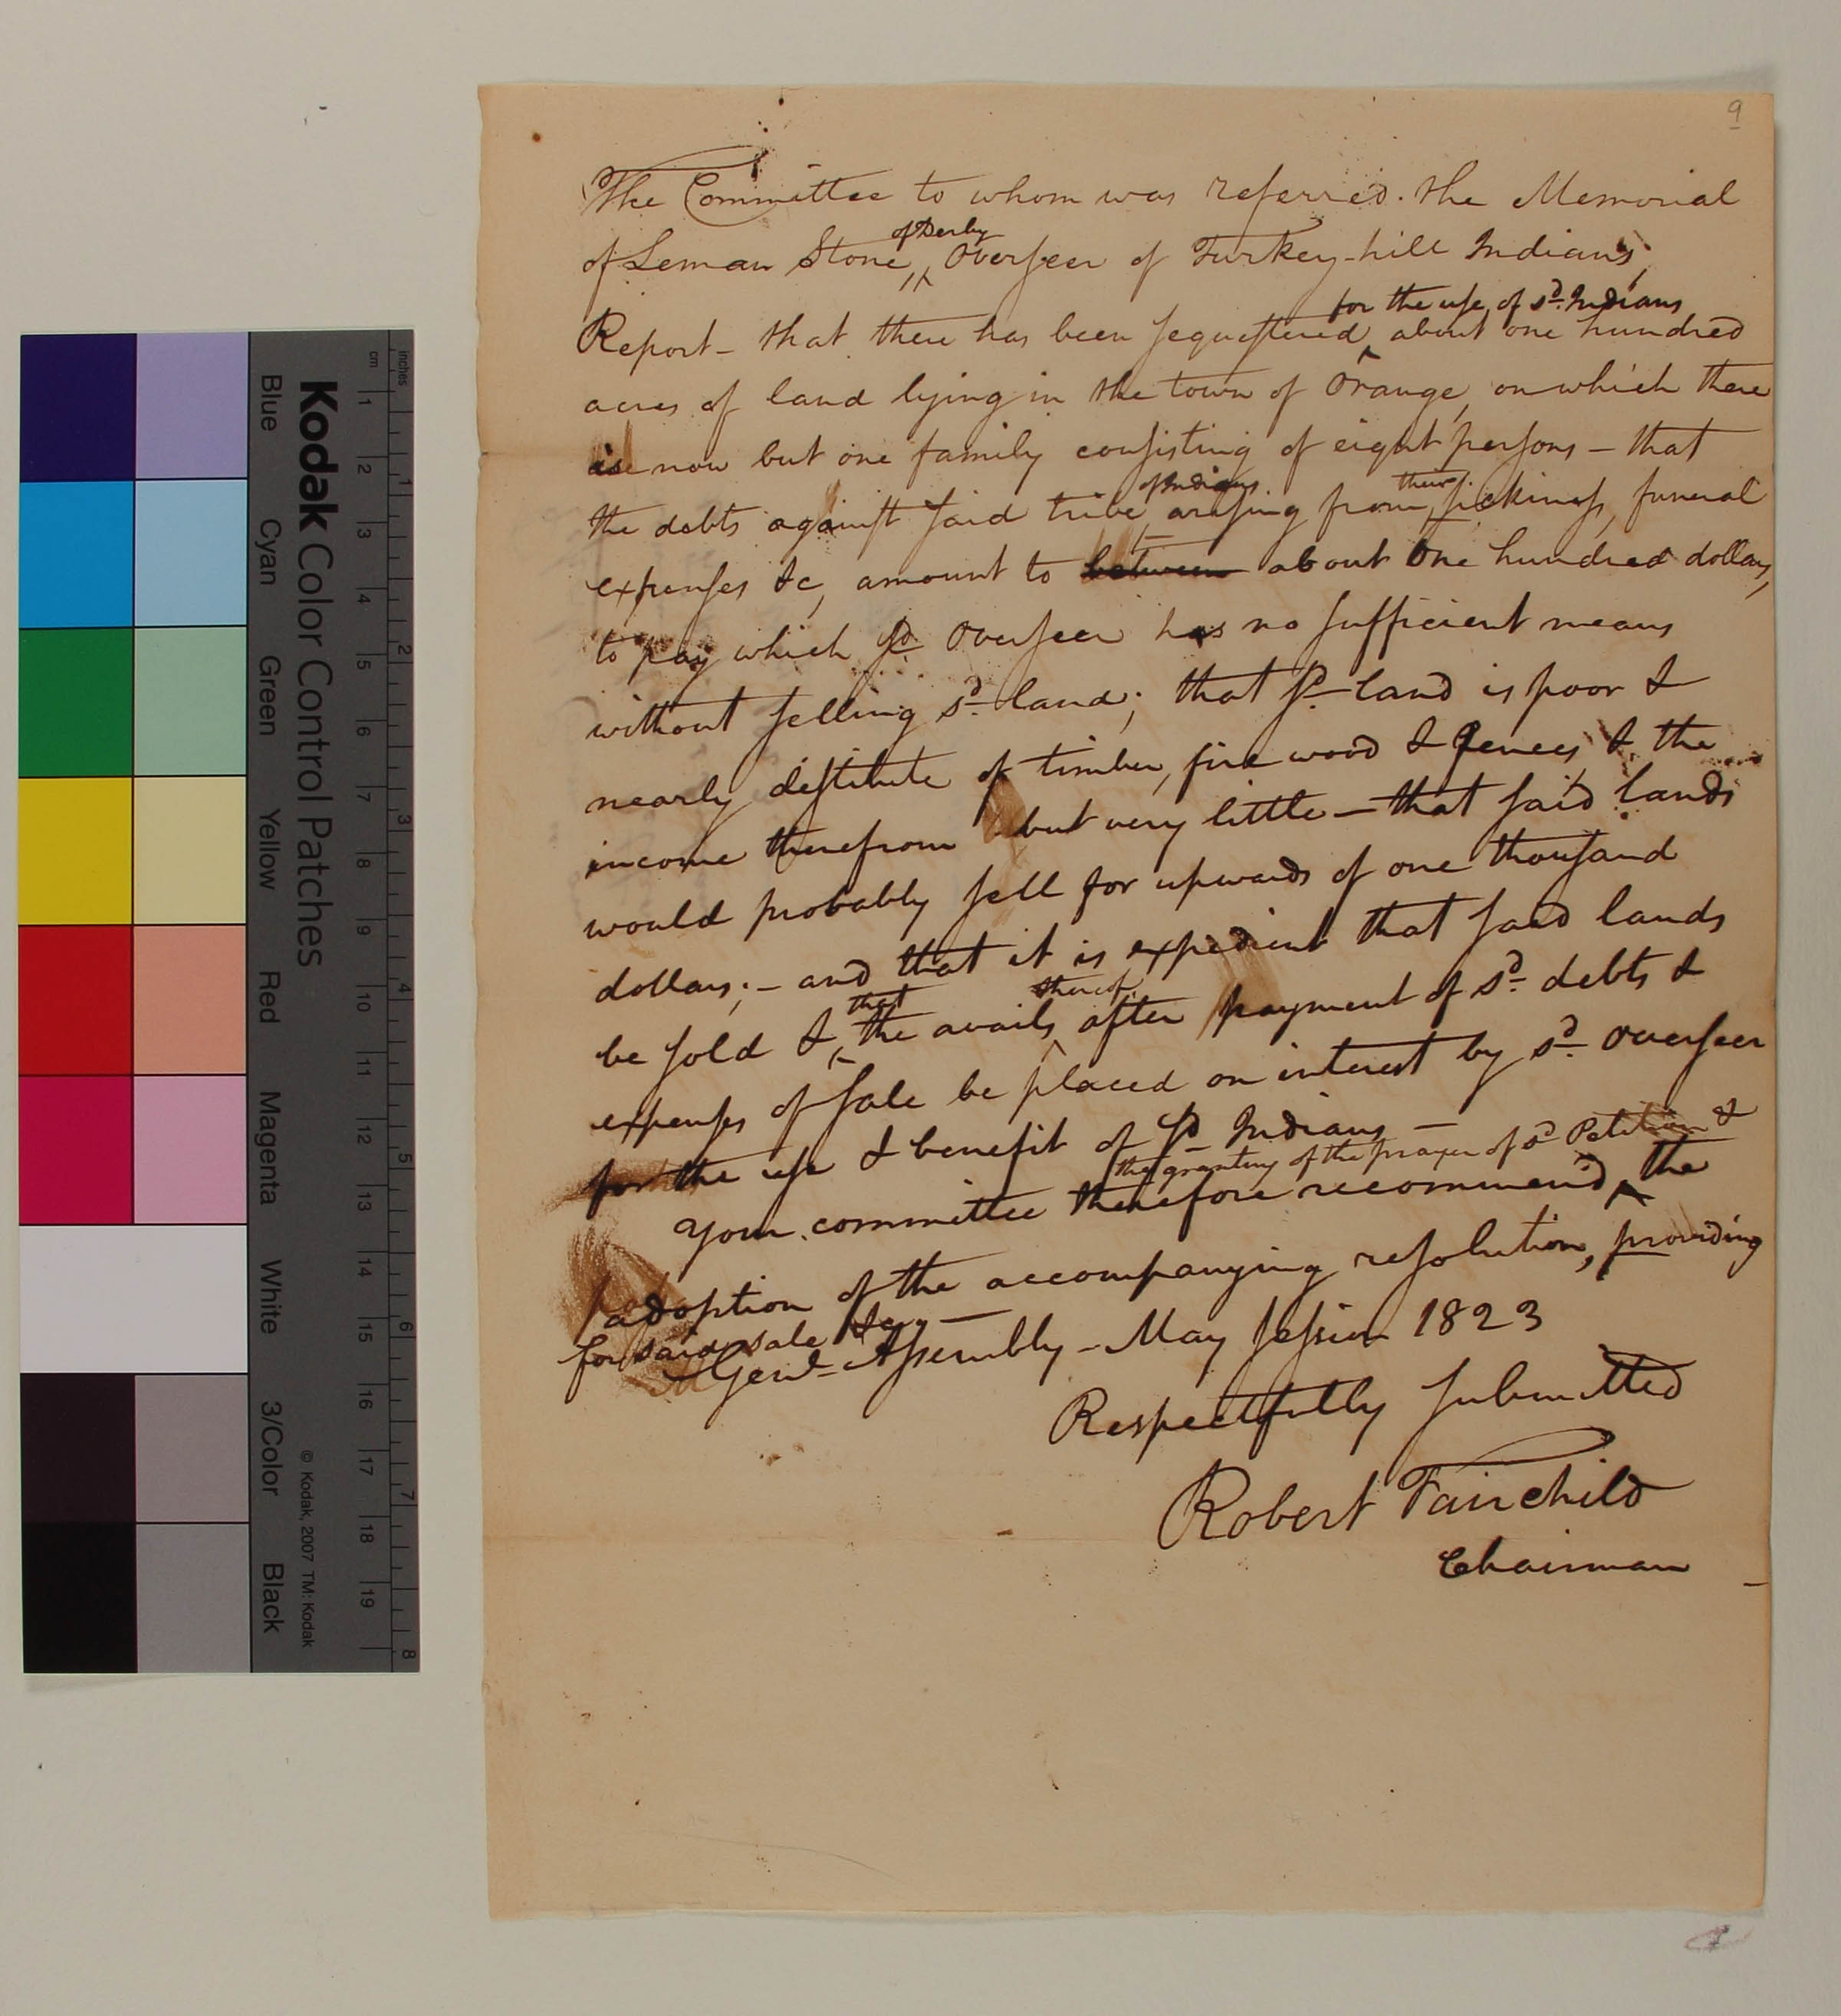 9
The Committee to whom was referred. the Memorial
of Leman Stone, of Derby Overseer of Turkey-hill Indians,
Report - that there has been sequestered for the use of sd. Indians about one hundred
acres of land lying in the town of Orange, on which there
is now but one family consisting of eight persons - that
the debts against said tribe of Indians arising from their sickness, funeral
expenses &c, amount to between about One hundred dollars,
to pay which sd. Overseer has no sufficient means
without selling sd. land; that sd. land is poor &
nearly destitute of timber, fire wood & fences, & the
income therefrom but very little - that said lands
would probably sell for upwards of one thousand
dollars; - and that it is expedient that said lands
be sold & that the avails thereof after payment of sd. debts &
expenses of sale be placed on interest by sd. Overseer
for the use & benefit of sd Indians -
Your committee therefore recommend the granting of the prayer of sd Petition & the
adoption of the accompanying resolution, providing
for said sale &c, -
Genl. Assembly - May Session 1823
Respectfully submitted
Robert Fairchild
Chairman
Kodak Color Control Patches
© Kodak, 2007 TM: Kodak
Blue Cyan Green Yellow Red Magenta White 3/Color Black
inches 1 2 3 4 5 6 7 8
cm 1 2 3 4 5 6 7 8 9 10 11 12 13 14 15 16 17 18 19